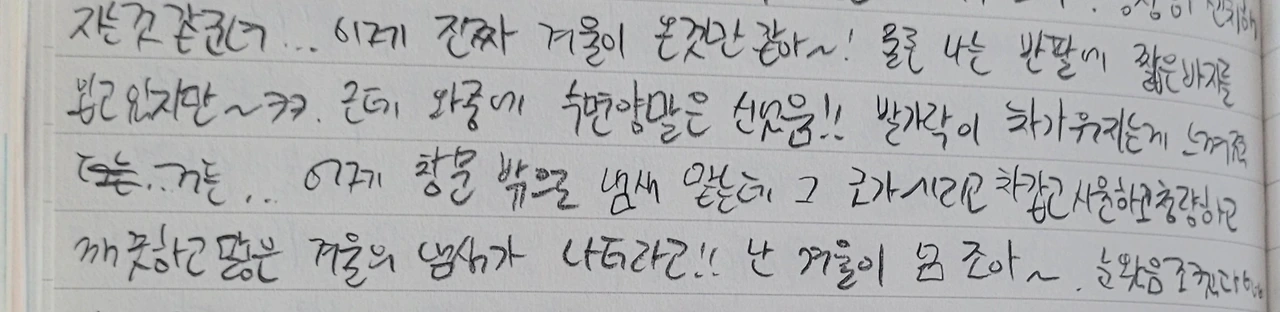 자는것 같던데... 이제 진짜 겨울이 온것만 같아~! 물론 나는 반팔에 짧은바지를
입고있지만~ㅋㅋ. 근데 와중에 수면양말은 신었음!! 발가락이 차가워지는게 느껴져
...거든... 어제 창문 밖으로 냄새 맡는데 그 코가시리고 차갑고 서운하고청량하고
깨끗하고 맑은 겨울의 냄새가 나더라고!! 난 겨울이 넘 조아~. 눈왔음 조켔다